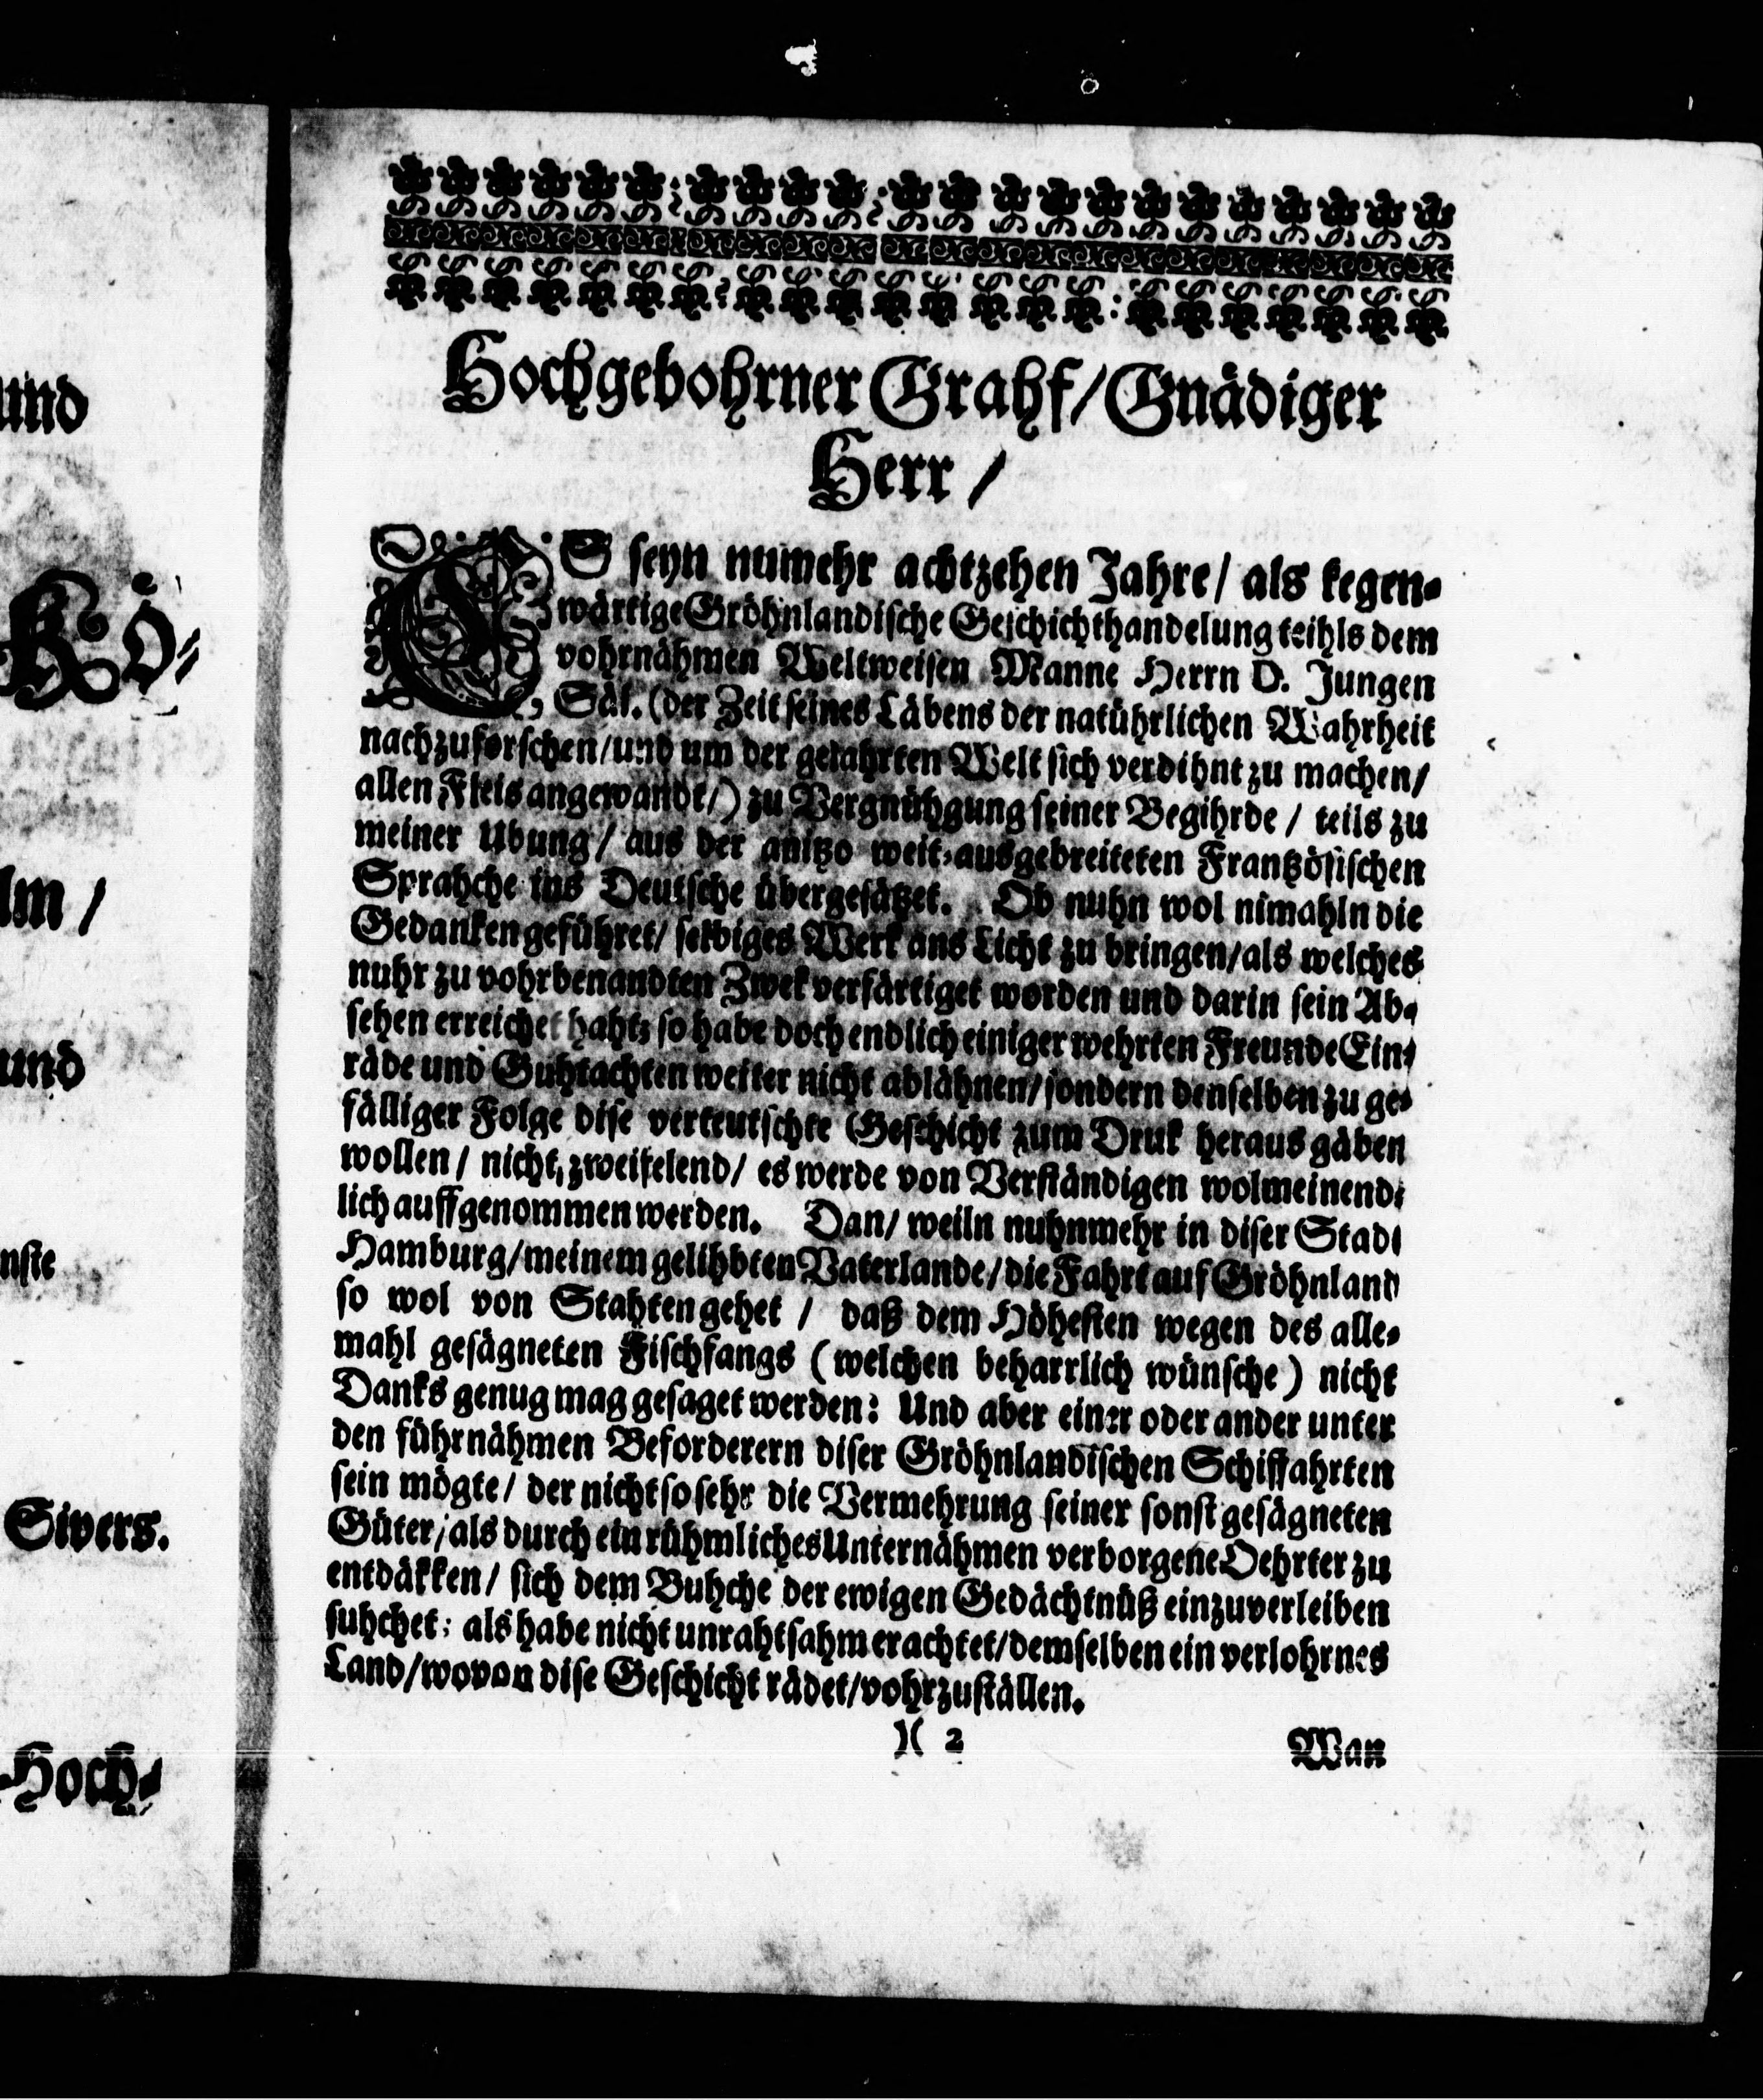 und
Kö-
lm /
und
nste
Sivers.
Hoch-
Hochgebohrner Grahf/ Gnädiger
Herr /
ES seyn numehr achtzehen Jahre/ als kegen-
wärtige Gröhnlandische Geschichthandelung teihls dem
vohrnähmen Weltweisen Manne Herrn D. Jungen
Säl. (der Zeit seines Läbens der natührlichen Wahrheit
nachzuforschen/und um der gelahrten Welt sich verdihnt zu machen/
allen Fleis angewandt/) zu Vergnühgung seiner Begihrde / teils zu
meiner Ubung/ aus der anitzo weit-ausgebreiteten Frantzösischen
Sprahche ins Deutsche übergesätzet. Ob nuhn wol nimahln die
Gedanken geführet/ selbiges Werk ans Licht zu bringen/als welches
nuhr zu vohrbenandten Zwek verfärtiget worden und darin sein Ab-
sehen erreichet haht; so habe doch endlich einiger wehrten Freunde Ein-
räde und Guhtachten weiter nicht ablähnen/sondern denselben zu ge-
fälliger Folge dise verteutschte Geschicht zum Druk heraus gäben
wollen/ nicht zweifelend/ es werde von Verständigen wolmeinend-
lich auffgenommen werden. Dan/ weiln nuhnmehr in diser Stadt
Hamburg/meinem gelihbten Vaterlande/die Fahrt auf Gröhnland
so wol von Stahten gehet / daß dem Höhesten wegen des alle-
mahl gesägneten Fischfangs (welchen beharrlich wünsche) nicht
Danks genug mag gesaget werden: Und aber einer oder ander unter
den führnähmen Beforderern diser Gröhnlandischen Schiffahrten
sein mögte/ der nicht so sehr die Vermehrung seiner sonst gesägneten
Güter/als durch ein rühmliches Unternähmen verborgene Oehrter zu
entdäkken/ sich dem Buhche der ewigen Gedächtnüß einzuverleiben
suhchet: als habe nicht unrahtsahm erachtet/demselben ein verlohrnes
Land/wovon dise Geschicht rädet/vohrzuställen.
)( 2
Wan